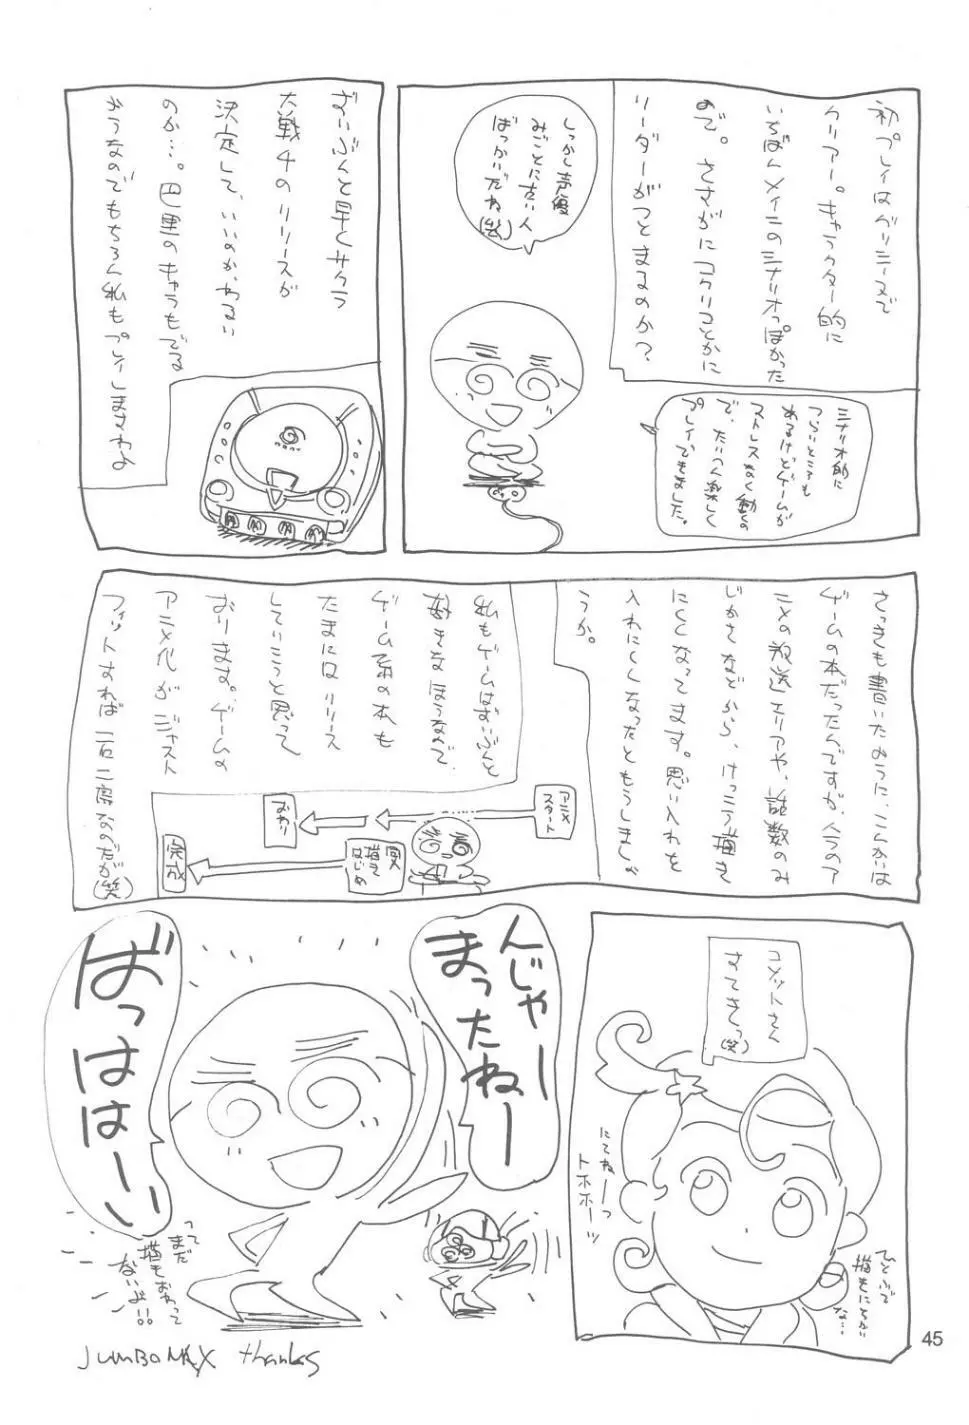 初プレイはグリシーヌで
クリアー。キャラクター的に
いちばんメインのシナリオっぽかった
ので。さすがにコクリコとかに
リーダーがつとまるのか?
しっかし声優
みごとに古い人
ばっかいだね(笑)
シナリオ的に
つらいところも
あるけどゲームが
ストレスなく動くの
で、たいへん楽しく
プレイできました。
ずいぶんと早くサクラ
大戦4のリリースが
決定して、いいのか、わるい
のか…。巴里のキャラもでる
ようなのでもちろん私もプレイしますわよ
さっきも書いたように、こんかいは
ゲームの本だったんですが、今うのア
ニメの放送エリアや、話数のみ
じかさなどから、けっこう描き
にくくなってます。思い入れを
入れにくくなったともうしましょ
うか。
私もゲームはずいぶんと
好きなほうなんで、
ゲーム系の本も
たまにはリリース
していこうと思って
おります。ゲームの
アニメ化がジャスト
フィットすれば一石二鳥なのだが(笑)
アニメ
スタート
おわり
描き
はじめ
完成
コメットさん
すてきっ(笑)
にてねーっ
トホホーッ
ひとふで
描きにちかい
な…
んじゃー
まったねー
ばっはは一い
って
まだ
描きおわって
ないよ!!
JUMBOMAX thanks
45